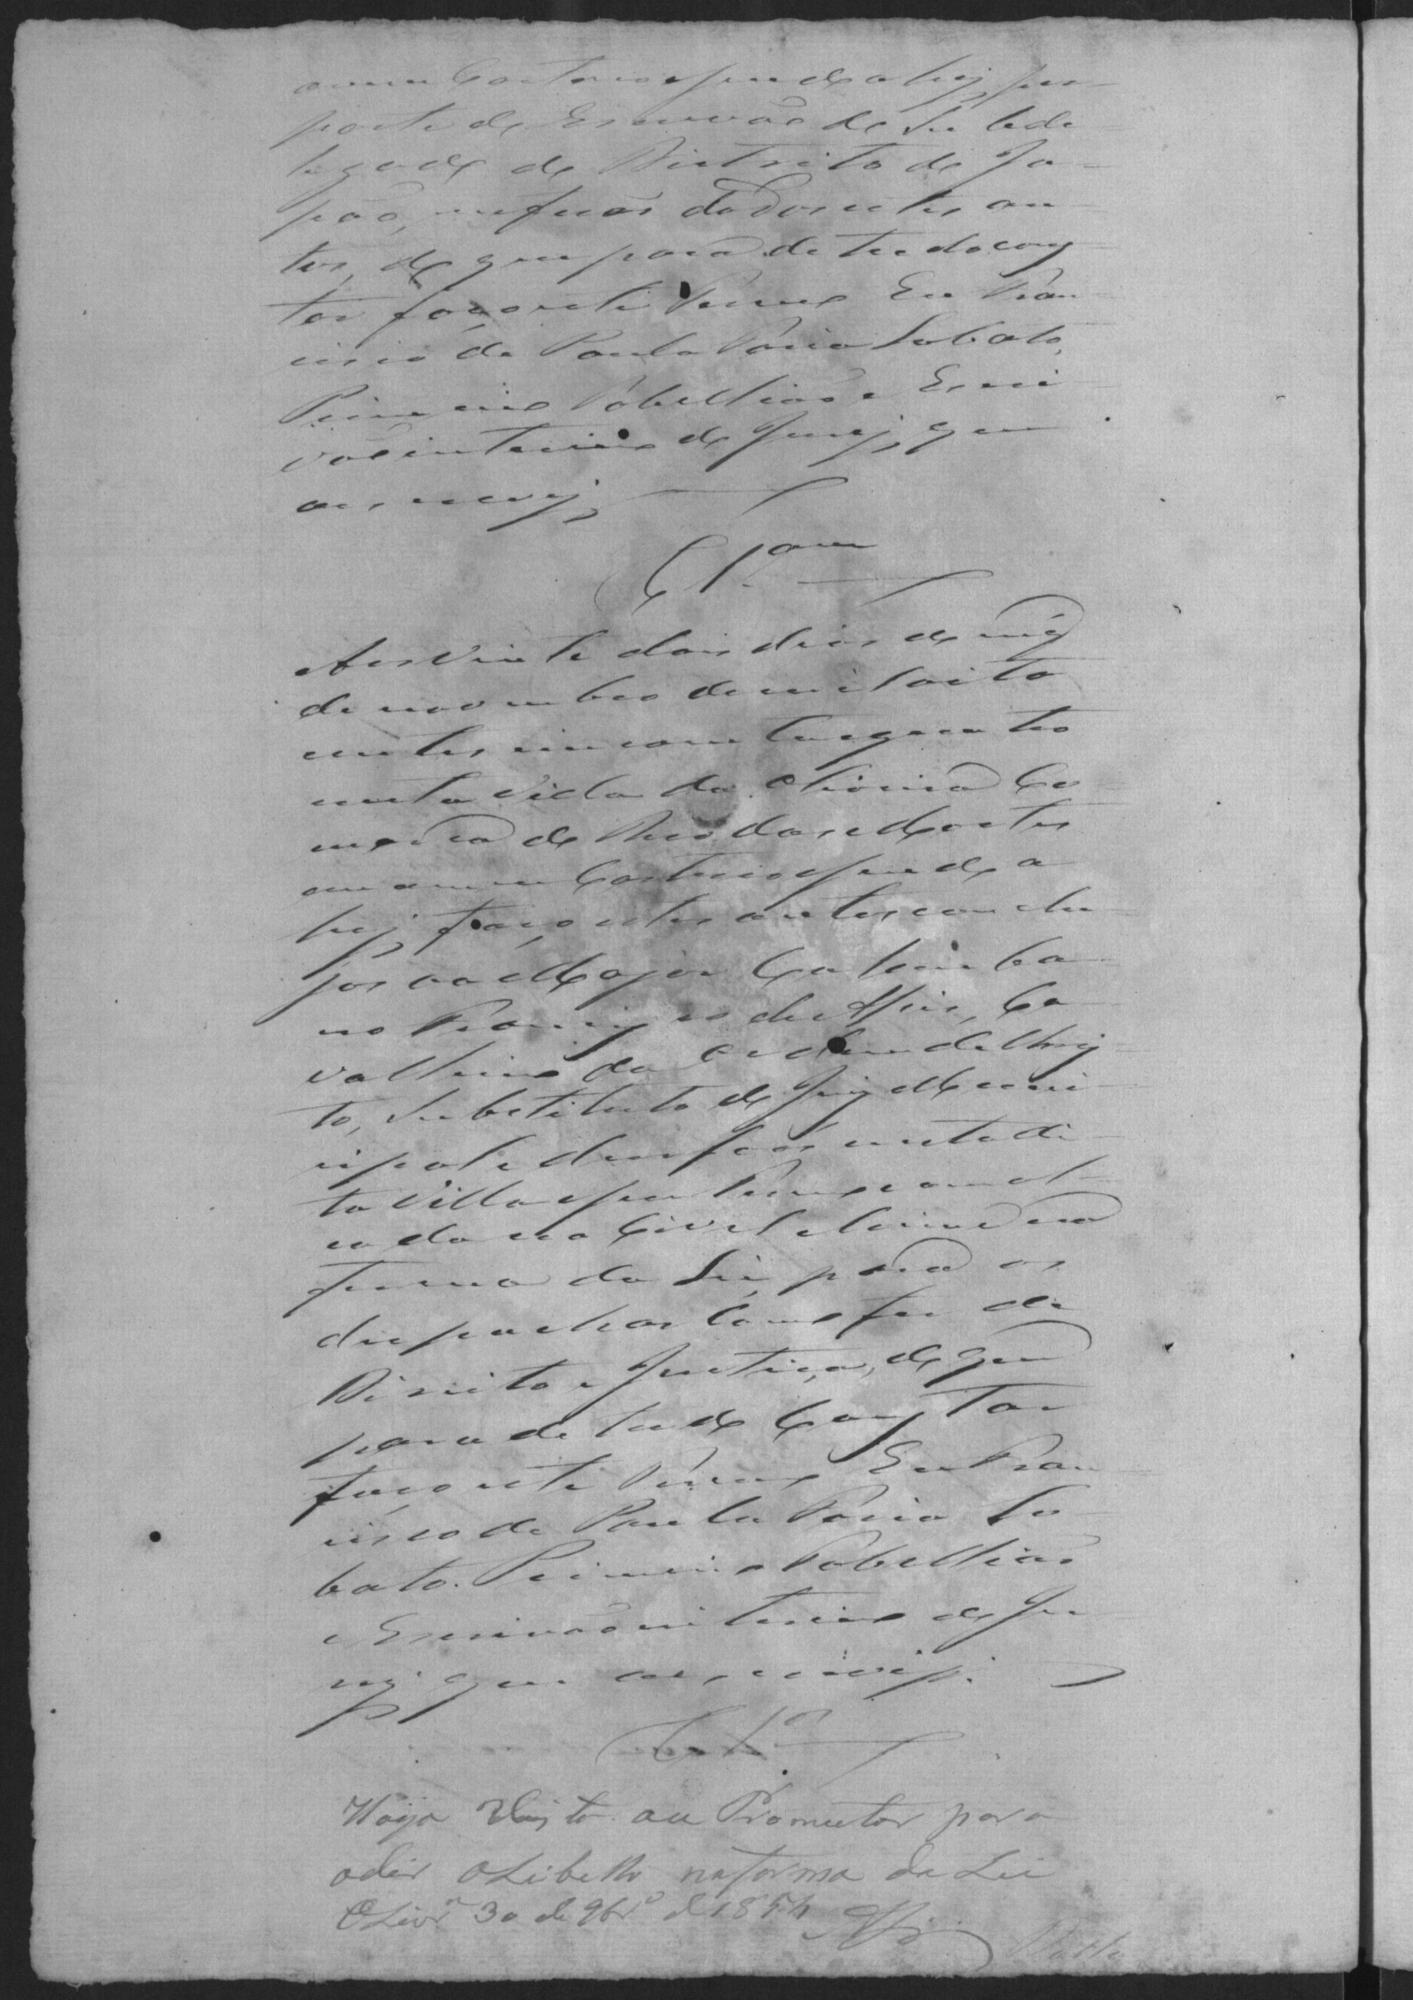 em meu Cartorio sendo ahi, por
parte do Escrivão do Subde
legado do Districto do Ja
pão, me forão dados estes au
tos, de que para de tudo cons
tar faço este Termo Eu Fran
cisco de Paula Faria Lobato,
Primeiro Tabellião e Escri
vão interino do Jury, que
o escrevy
Clzam
Aos vinte dois dias do mez
de novembro de mil oito
centos cincoenta e quatro
nesta Villa da Oliveira Co
marca do Rio das Mortes
em meu Cartorio sendo a
hi, faço estes autos conclu
sos ao Major
de Assis, Ca
valleiro da Ordem de Chris
to, Substituto do Juiz Muni
cipal e dos Orfãos nesta di
ta Villa e seu Termo
no Civel e Crime na
forma da Lei, para os
despachar como for de
Direito e Justiça, de que
para de tudo constar
faço este Termo Eu Fran
cisco de Paula Faria Lo
bato. Primeiro Tabellião
e Escrivão interino do Ju
ry que o escrevy.
Clzos
Haja Vista ao Promutor para
odir o Libello na forma da Lei
Olivrª 30 de 9brº de 1854 Assis